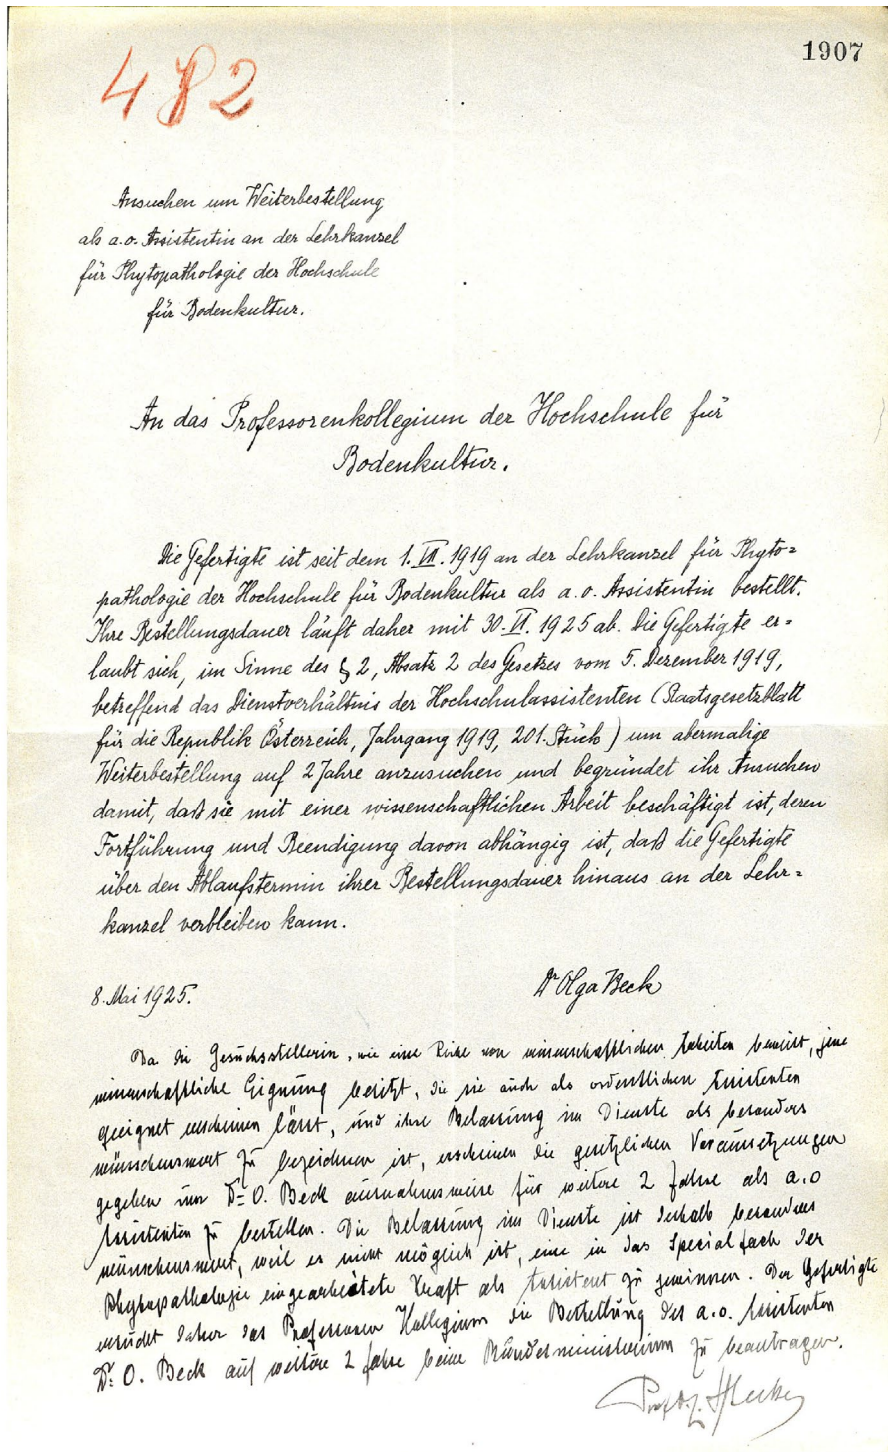 1907
482
Ansuchen um Weiterbestellung
als a.o. Assistentin an der Lehrkanzel
für Phytopathologie der Hochschule
für Bodenkultur.
An das Professorenkollegium der Hochschule für
Bodenkultur.
Die Gefertigte ist seit dem 1. VII. 1919 an der Lehrkanzel für Phyto=
pathologie der Hochschule für Bodenkultur als a.o. Assistentin bestellt.
Ihre Bestellungsdauer läuft daher mit 30. VI. 1925 ab. Die Gefertigte er=
laubt sich, im Sinne des § 2, Absatz 2 des Gesetzes vom 5. Dezember 1919,
betreffend das Dienstverhältnis der Hochschulassistenten (Staatsgesetzblatt
für die Republik Österreich, Jahrgang 1919, 201. Stück) um abermalige
Weiterbestellung auf 2 Jahre anzusuchen und begründet ihr Ansuchen
damit, daß sie mit einer wissenschaftlichen Arbeit beschäftigt ist, deren
Fortführung und Beendigung davon abhängig ist, daß die Gefertigte
über den Ablaufstermin ihrer Bestellungsdauer hinaus an der Lehr=
kanzel verbleiben kann.
8. Mai 1925.
Dr Olga Beck
Da die Gesuchsstellerin, wie eine Reihe von wissenschaftlichen Arbeiten beweist, jene
wissenschaftliche Eignung besitzt, die sie auch als ordentlichen Assistenten
geeignet erscheinen lässt, und ihre Belassung im Dienste als besonders
wünschenswert zu bezeichnen ist, erscheinen die gesetzlichen Voraussetzungen
gegeben um Dr O. Beck ausnahmsweise für weitere 2 Jahre als a.o
Assistenten zu bestellen. Die Belassung im Dienste ist deshalb besonders
wünschenswert, weil es nicht möglich ist, eine in das Specialfach der
Phytopathologie eingearbeitete Kraft als Assistent zu gewinnen. Der Gefertigte
ersucht daher das Professoren Kollegium die Bestellung des a.o. Assistenten
Dr. O. Beck auf weitere 2 Jahre beim Bundesministerium zu beantragen.
Prof Dr.